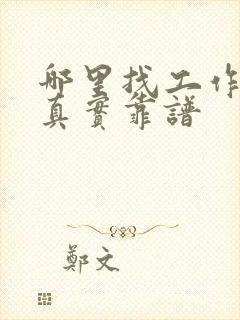 哪里找工作
真實靠譜
鄭文